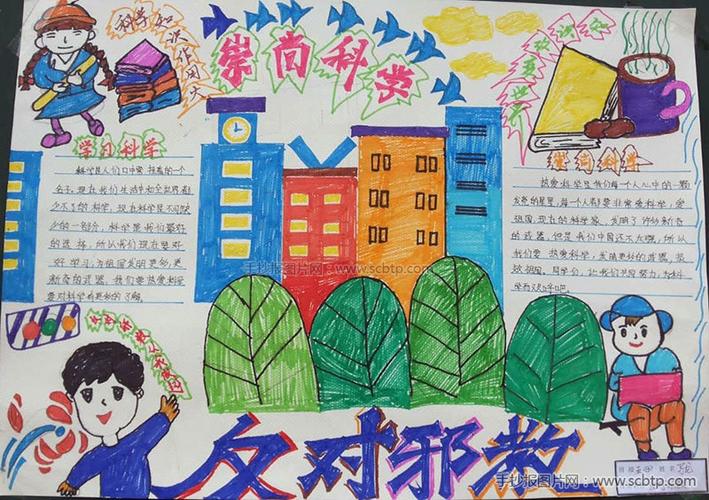 科学知识作用大
崇尚科学
学习科学
科学是人们口中常挂着的一个
名字,现在我们生活中和全世界都
少不了的科学,现在科学是不可缺
少的一部分,科学是我们最好
的选择,所以我们现在要好
好学习,为祖国发明更多更
新奇的武器,我们要热爱科学
要对科学有更好的了解。
崇尚科学
热爱科学是我们每个人心中的一颗
发亮的星星,每一个人都要非常爱科学,爱
祖国,现在的科学家,发明了许多新奇
的武器,但是我们中国还不太强,所以我
们要热爱科学,发明更好的武器,装
手抄报图片网:www.scbtp.com
反对邪教
班级 姓名
手抄报图片网:www.scbtp.com